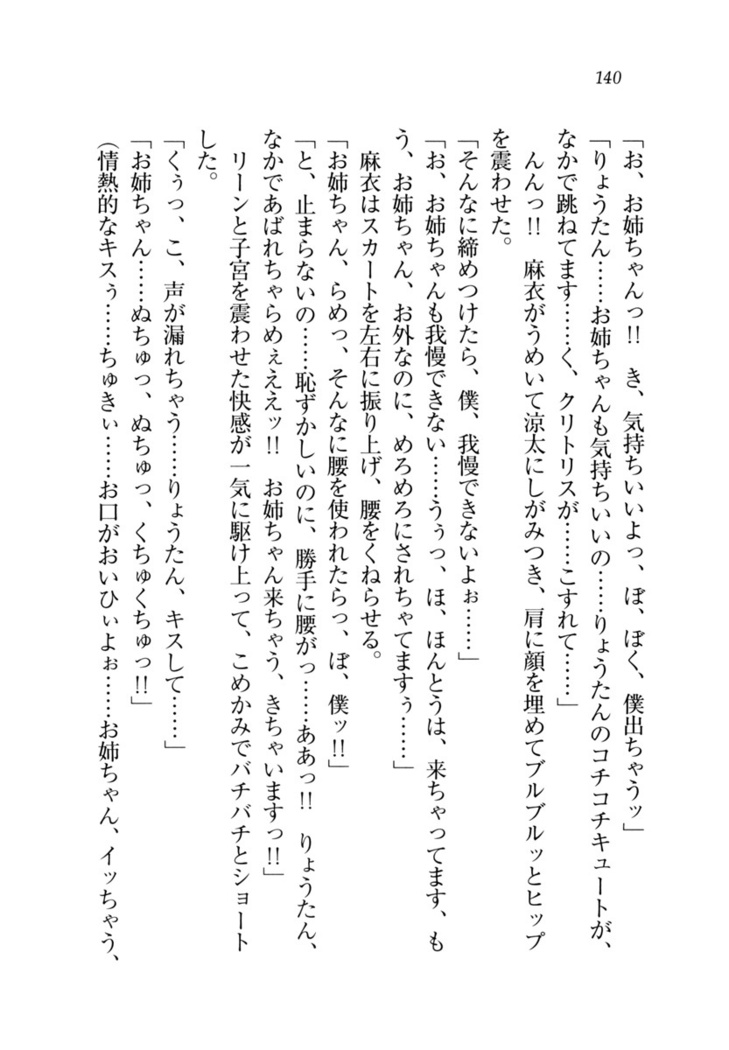 140
「お、お姉ちゃんっ!! き、気持ちいいよっ、ぼ、ぼく、僕出ちゃうッ」
「りょうたん……お姉ちゃんも気持ちいいの……りょうたんのコチコチキュートが、
なかで跳ねてます……く、クリトリスが……こすれて……」
んんっ!! 麻衣がうめいて涼太にしがみつき、肩に顔を埋めてブルブルッとヒップ
を震わせた。
「そんなに締めつけたら、僕、我慢できないよぉ……」
「お、お姉ちゃんも我慢できない……うぅっ、ほ、ほんとうは、来ちゃってます、も
う、お姉ちゃん、お外なのに、めろめろにされちゃてますぅ……」
麻衣はスカートを左右に振り上げ、腰をくねらせる。
「お姉ちゃん、らめっ、そんなに腰を使われたらっ、ぼ、僕ッ!!」
「と、止まらないの……恥ずかしいのに、勝手に腰がっ……ああっ!! りょうたん、
なかであばれちゃらめぇええッ!! お姉ちゃん来ちゃう、きちゃいますっ!!」
リーンと子宮を震わせた快感が一気に駆け上って、こめかみでバチバチとショート
した。
「くぅっ、こ、声が漏れちゃう……りょうたん、キスして……」
「お姉ちゃん……ぬちゅっ、ぬちゅっ、くちゅくちゅっ!!」
(情熱的なキスぅ……ちゅきぃ……お口がおいひぃよぉ……お姉ちゃん、イッちゃう、